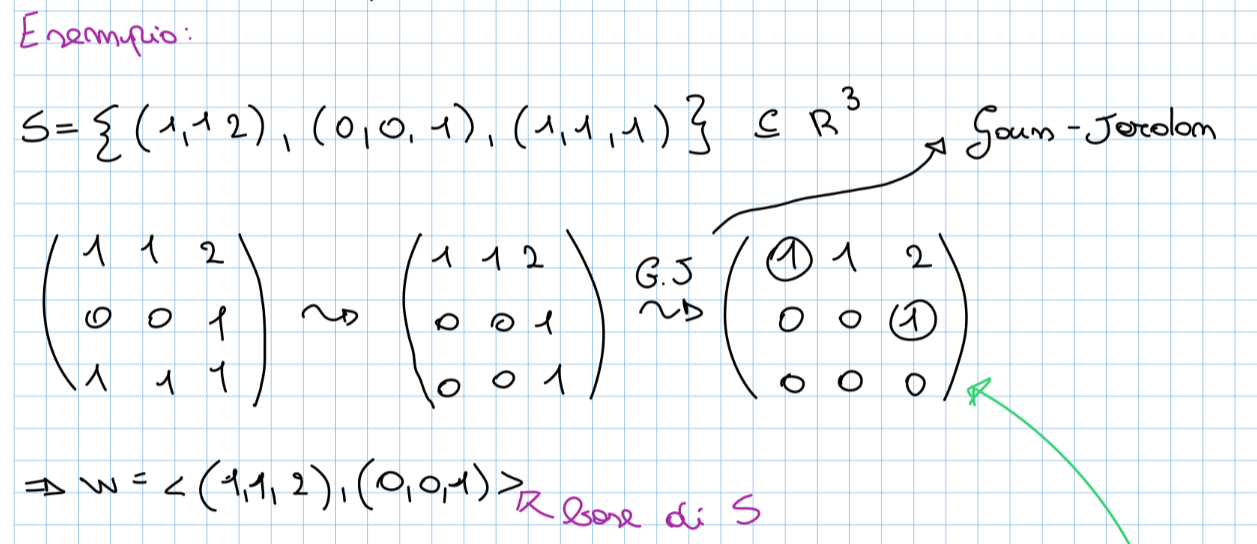 Esempio:
S = { (1,1 2), (0,0,1), (1,1,1) } ⊆ R³ Gauss-Jordan
( 1 1 2 ; 0 0 1 ; 1 1 1 ) ⇝ ( 1 1 2 ; 0 0 1 ; 0 0 1 ) G.J ⇝ ( 1 1 2 ; 0 0 1 ; 0 0 0 )
⇒ W = < (1,1,2), (0,0,1) > base di S